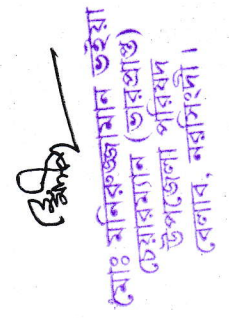 মোঃ মনিরুজ্জামান ভূইয়া
চেয়ারম্যান (ভারপ্রাপ্ত)
উপজেলা পরিষদ
বেলাব, নরসিংদী।